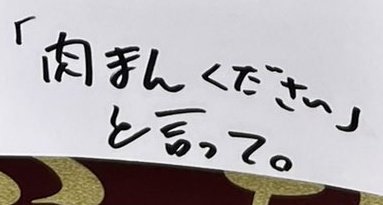 「肉まんください」
と言って。